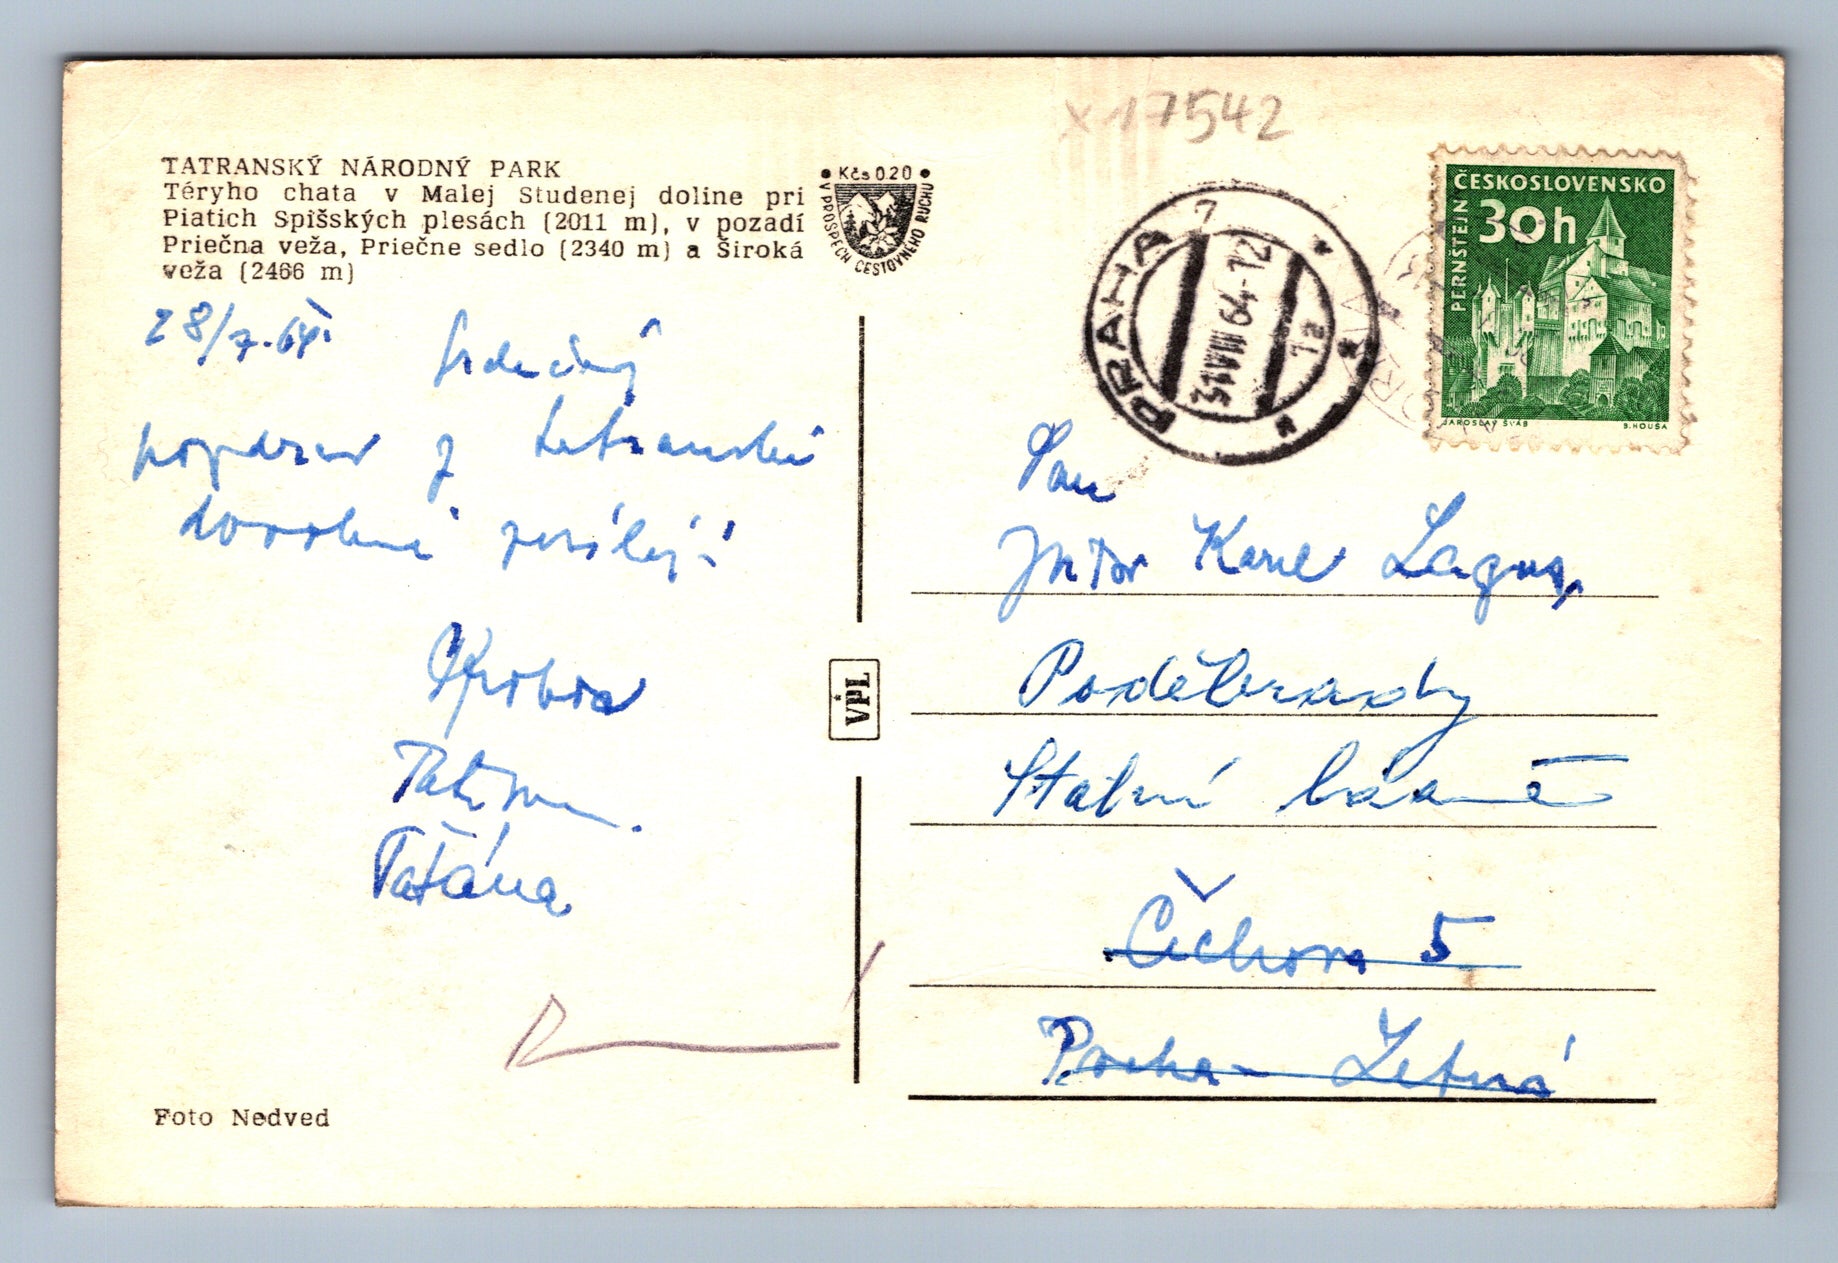 x 17542
TATRANSKÝ NÁRODNÝ PARK
Téryho chata v Malej Studenej doline pri
Piatich Spišských plesách (2011 m), v pozadí
Priečna veža, Priečne sedlo (2340 m) a Široká
veža (2466 m)
Kčs 0.20
V PROSPECH CESTOVNÉHO RUCHU
PRAHA 7
31.VIII 64-12
1a
ČESKOSLOVENSKO
30h
PERNŠTEJN
JAROSLAV ŠVÁB
B. HOUSA
28/7.64.
Srdečný
pozdrav z tatranské
dovolené posílají
Taťána
VPL
Pan
Karel
Poděbrady
Státní lázně
Čechova 5
Praha - Letná
Foto Nedved